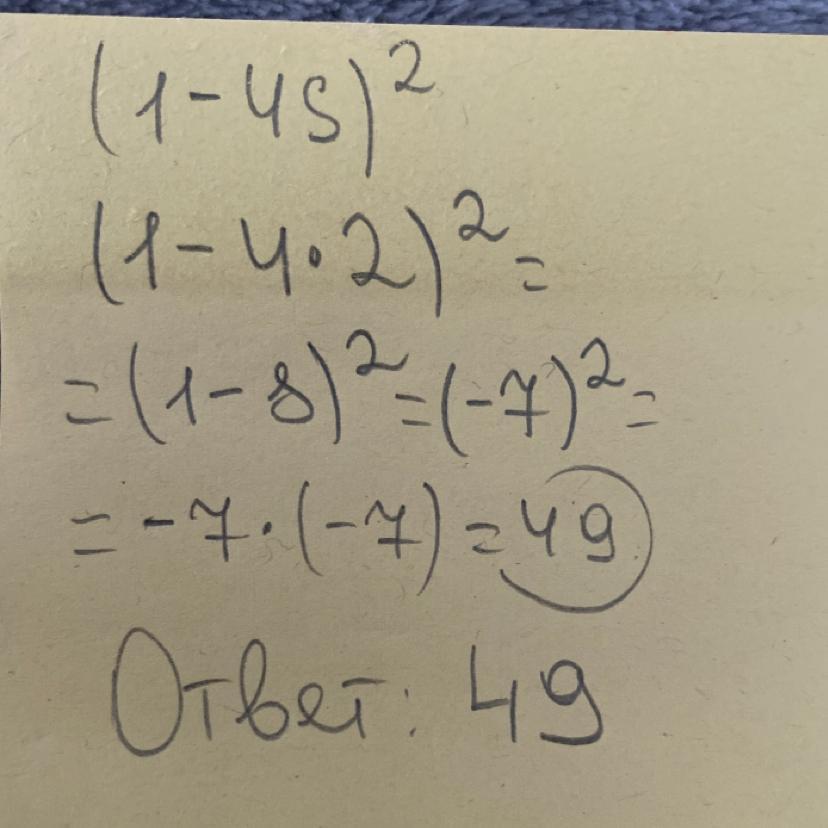 (1-4S)²
(1-4·2)²=
=(1-8)²=(-7)²=
=-7·(-7)=49
Ответ: 49